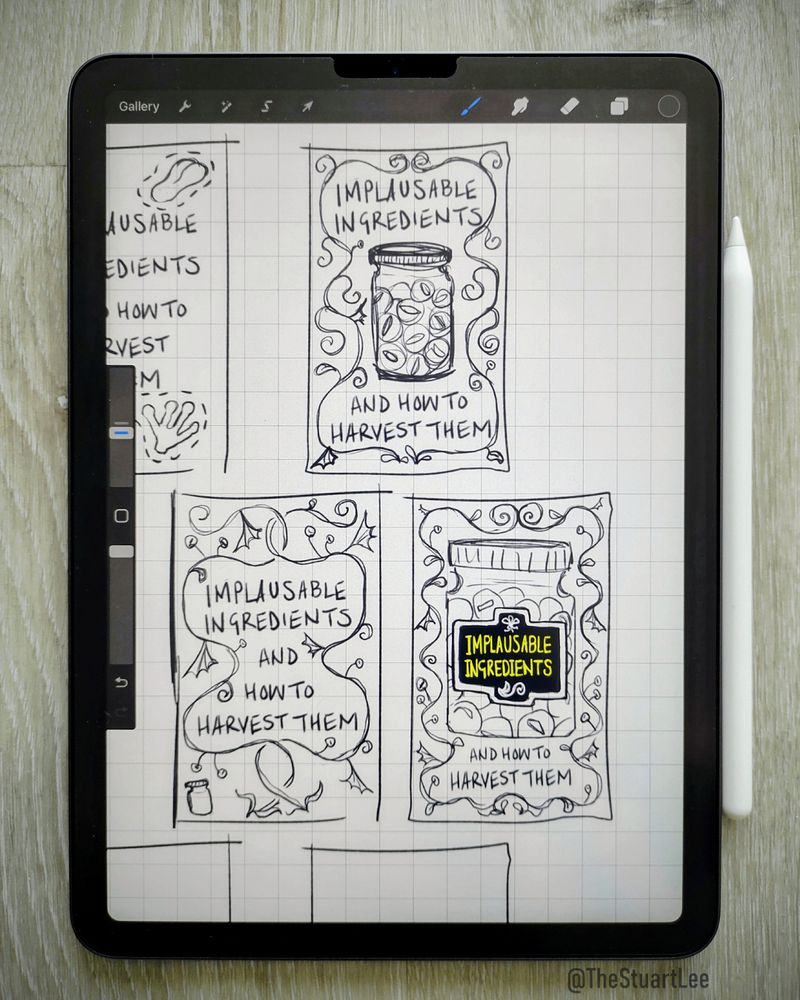 Gallery
AUSABLE
EDIENTS
HOW TO
RVEST
EM
IMPLAUSABLE
INGREDIENTS
AND HOW TO
HARVEST THEM
IMPLAUSABLE
INGREDIENTS
AND
HOW TO
HARVEST THEM
IMPLAUSABLE
INGREDIENTS
AND HOW TO
HARVEST THEM
@TheStuartLee